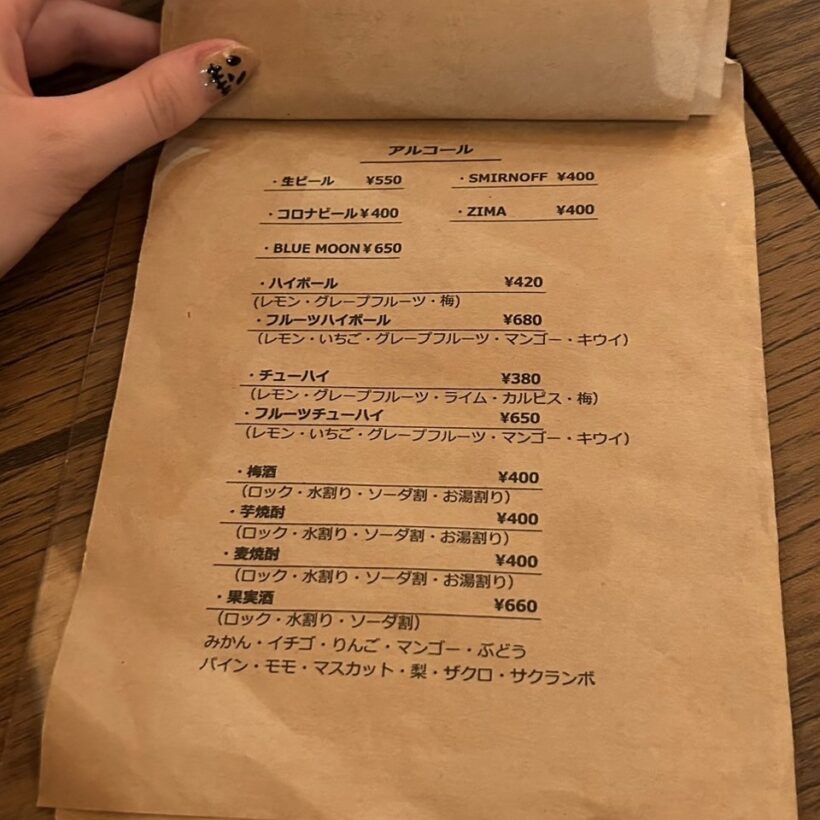 アルコール
・生ビール ¥550 ・SMIRNOFF ¥400
・コロナビール¥400 ・ZIMA ¥400
・BLUE MOON¥650
・ハイボール ¥420
(レモン・グレープフルーツ・梅)
・フルーツハイボール ¥680
(レモン・いちご・グレープフルーツ・マンゴー・キウイ)
・チューハイ ¥380
(レモン・グレープフルーツ・ライム・カルピス・梅)
・フルーツチューハイ ¥650
(レモン・いちご・グレープフルーツ・マンゴー・キウイ)
・梅酒 ¥400
(ロック・水割り・ソーダ割・お湯割り)
・芋焼酎 ¥400
(ロック・水割り・ソーダ割・お湯割り)
・麦焼酎 ¥400
(ロック・水割り・ソーダ割・お湯割り)
・果実酒 ¥660
(ロック・水割り・ソーダ割)
みかん・イチゴ・りんご・マンゴー・ぶどう
パイン・モモ・マスカット・梨・ザクロ・サクランボ